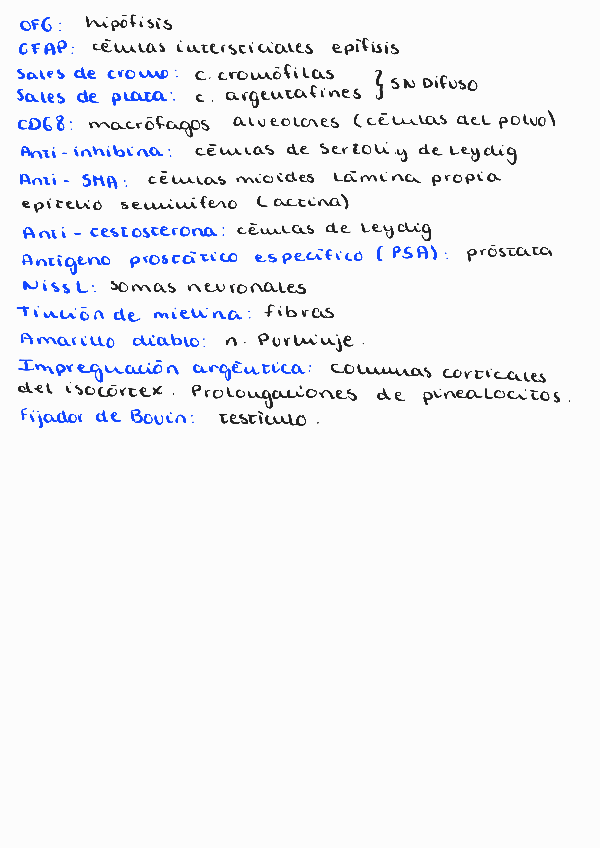 OFG: hipófisis
GFAP: células intersticiales epífisis
Sales de cromo: c. cromófilas
Sales de plata: c. argentafines } SN Difuso
CD68: macrófagos alveolares (células del polvo)
Anti-inhibina: células de Sertoli y de Leydig
Anti-SMA: células mioides lámina propia
epitelio seminífero (actina)
Anti-testosterona: células de Leydig
Antígeno prostático específico (PSA): próstata
Nissl: somas neuronales
Tinción de mielina: fibras
Amarillo diablo: n. Purkinje.
Impregnación argéntica: columnas corticales
del isocórtex. Prolongaciones de pinealocitos.
Fijador de Bouin: testículo.